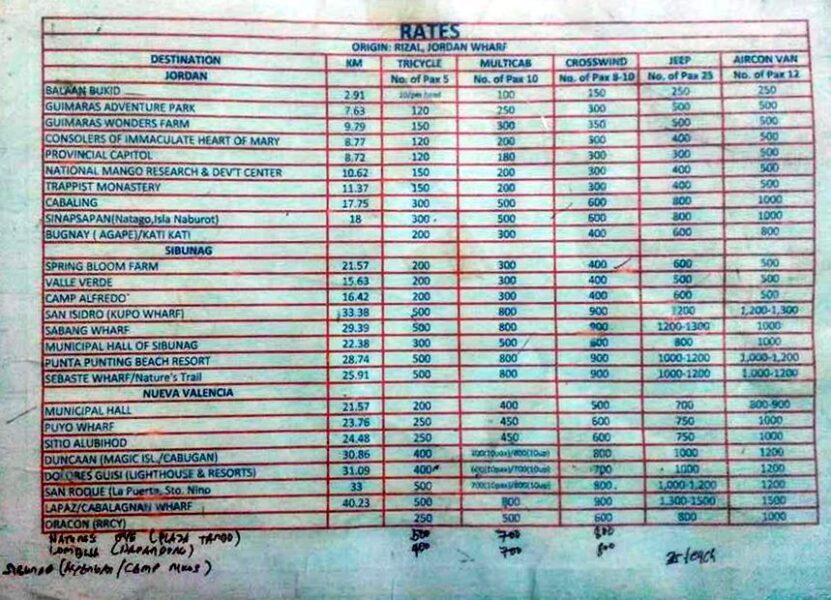 RATES
ORIGIN: RIZAL, JORDAN WHARF
DESTINATION KM TRICYCLE MULTICAB CROSSWIND JEEP AIRCON VAN
JORDAN No. of Pax 5 No. of Pax 10 No. of Pax 8-10 No. of Pax 25 No. of Pax 12
BALAAN BUKID 2.91 100 150 250 250
GUIMARAS ADVENTURE PARK 7.63 120 250 300 500 500
GUIMARAS WONDERS FARM 9.79 150 300 350 500 500
CONSOLERS OF IMMACULATE HEART OF MARY 8.77 120 200 300 400 500
PROVINCIAL CAPITOL 8.72 120 180 300 300 500
NATIONAL MANGO RESEARCH & DEV'T CENTER 10.62 150 200 300 400 500
TRAPPIST MONASTERY 11.37 150 200 300 400 500
CABALING 17.75 300 500 600 800 1000
SINAPSAPAN(Natago,Isla Naburot) 18 300 500 600 800 1000
BUGNAY ( AGAPE)/KATI KATI 200 300 400 600 800
SIBUNAG
SPRING BLOOM FARM 21.57 200 300 400 600 500
VALLE VERDE 15.63 200 300 400 500 500
CAMP ALFREDO 16.42 200 300 400 600 500
SAN ISIDRO (KUPO WHARF) 33.38 500 800 900 1200 1,200-1,300
SABANG WHARF 29.39 500 800 900 1200-1300 1000
MUNICIPAL HALL OF SIBUNAG 22.38 300 500 600 800 1000
PUNTA PUNTING BEACH RESORT 28.74 500 800 900 1000-1200 1,000-1,200
SEBASTE WHARF/Nature's Trail 25.91 500 800 900 1000-1200 1,000-1200
NUEVA VALENCIA
MUNICIPAL HALL 21.57 200 400 500 700 800-900
PUYO WHARF 23.76 250 450 600 750 1000
SITIO ALUBIHOD 24.48 250 450 600 750 1000
DUNCAAN (MAGIC ISL./CABUGAN) 30.86 400 800 1000 1200
DOLORES GUISI (LIGHTHOUSE & RESORTS) 31.09 400 700 1000 1200
SAN ROQUE (La Puerta, Sto. Nino 33 500 800 1,000-1,200 1200
LAPAZ/CABALAGNAN WHARF 40.23 500 800 900 1,300-1500 1500
ORACON (RRCY) 250 500 600 800 1000
NATURES EYE (PLAZA 500 700 800
400 700 800
25/each